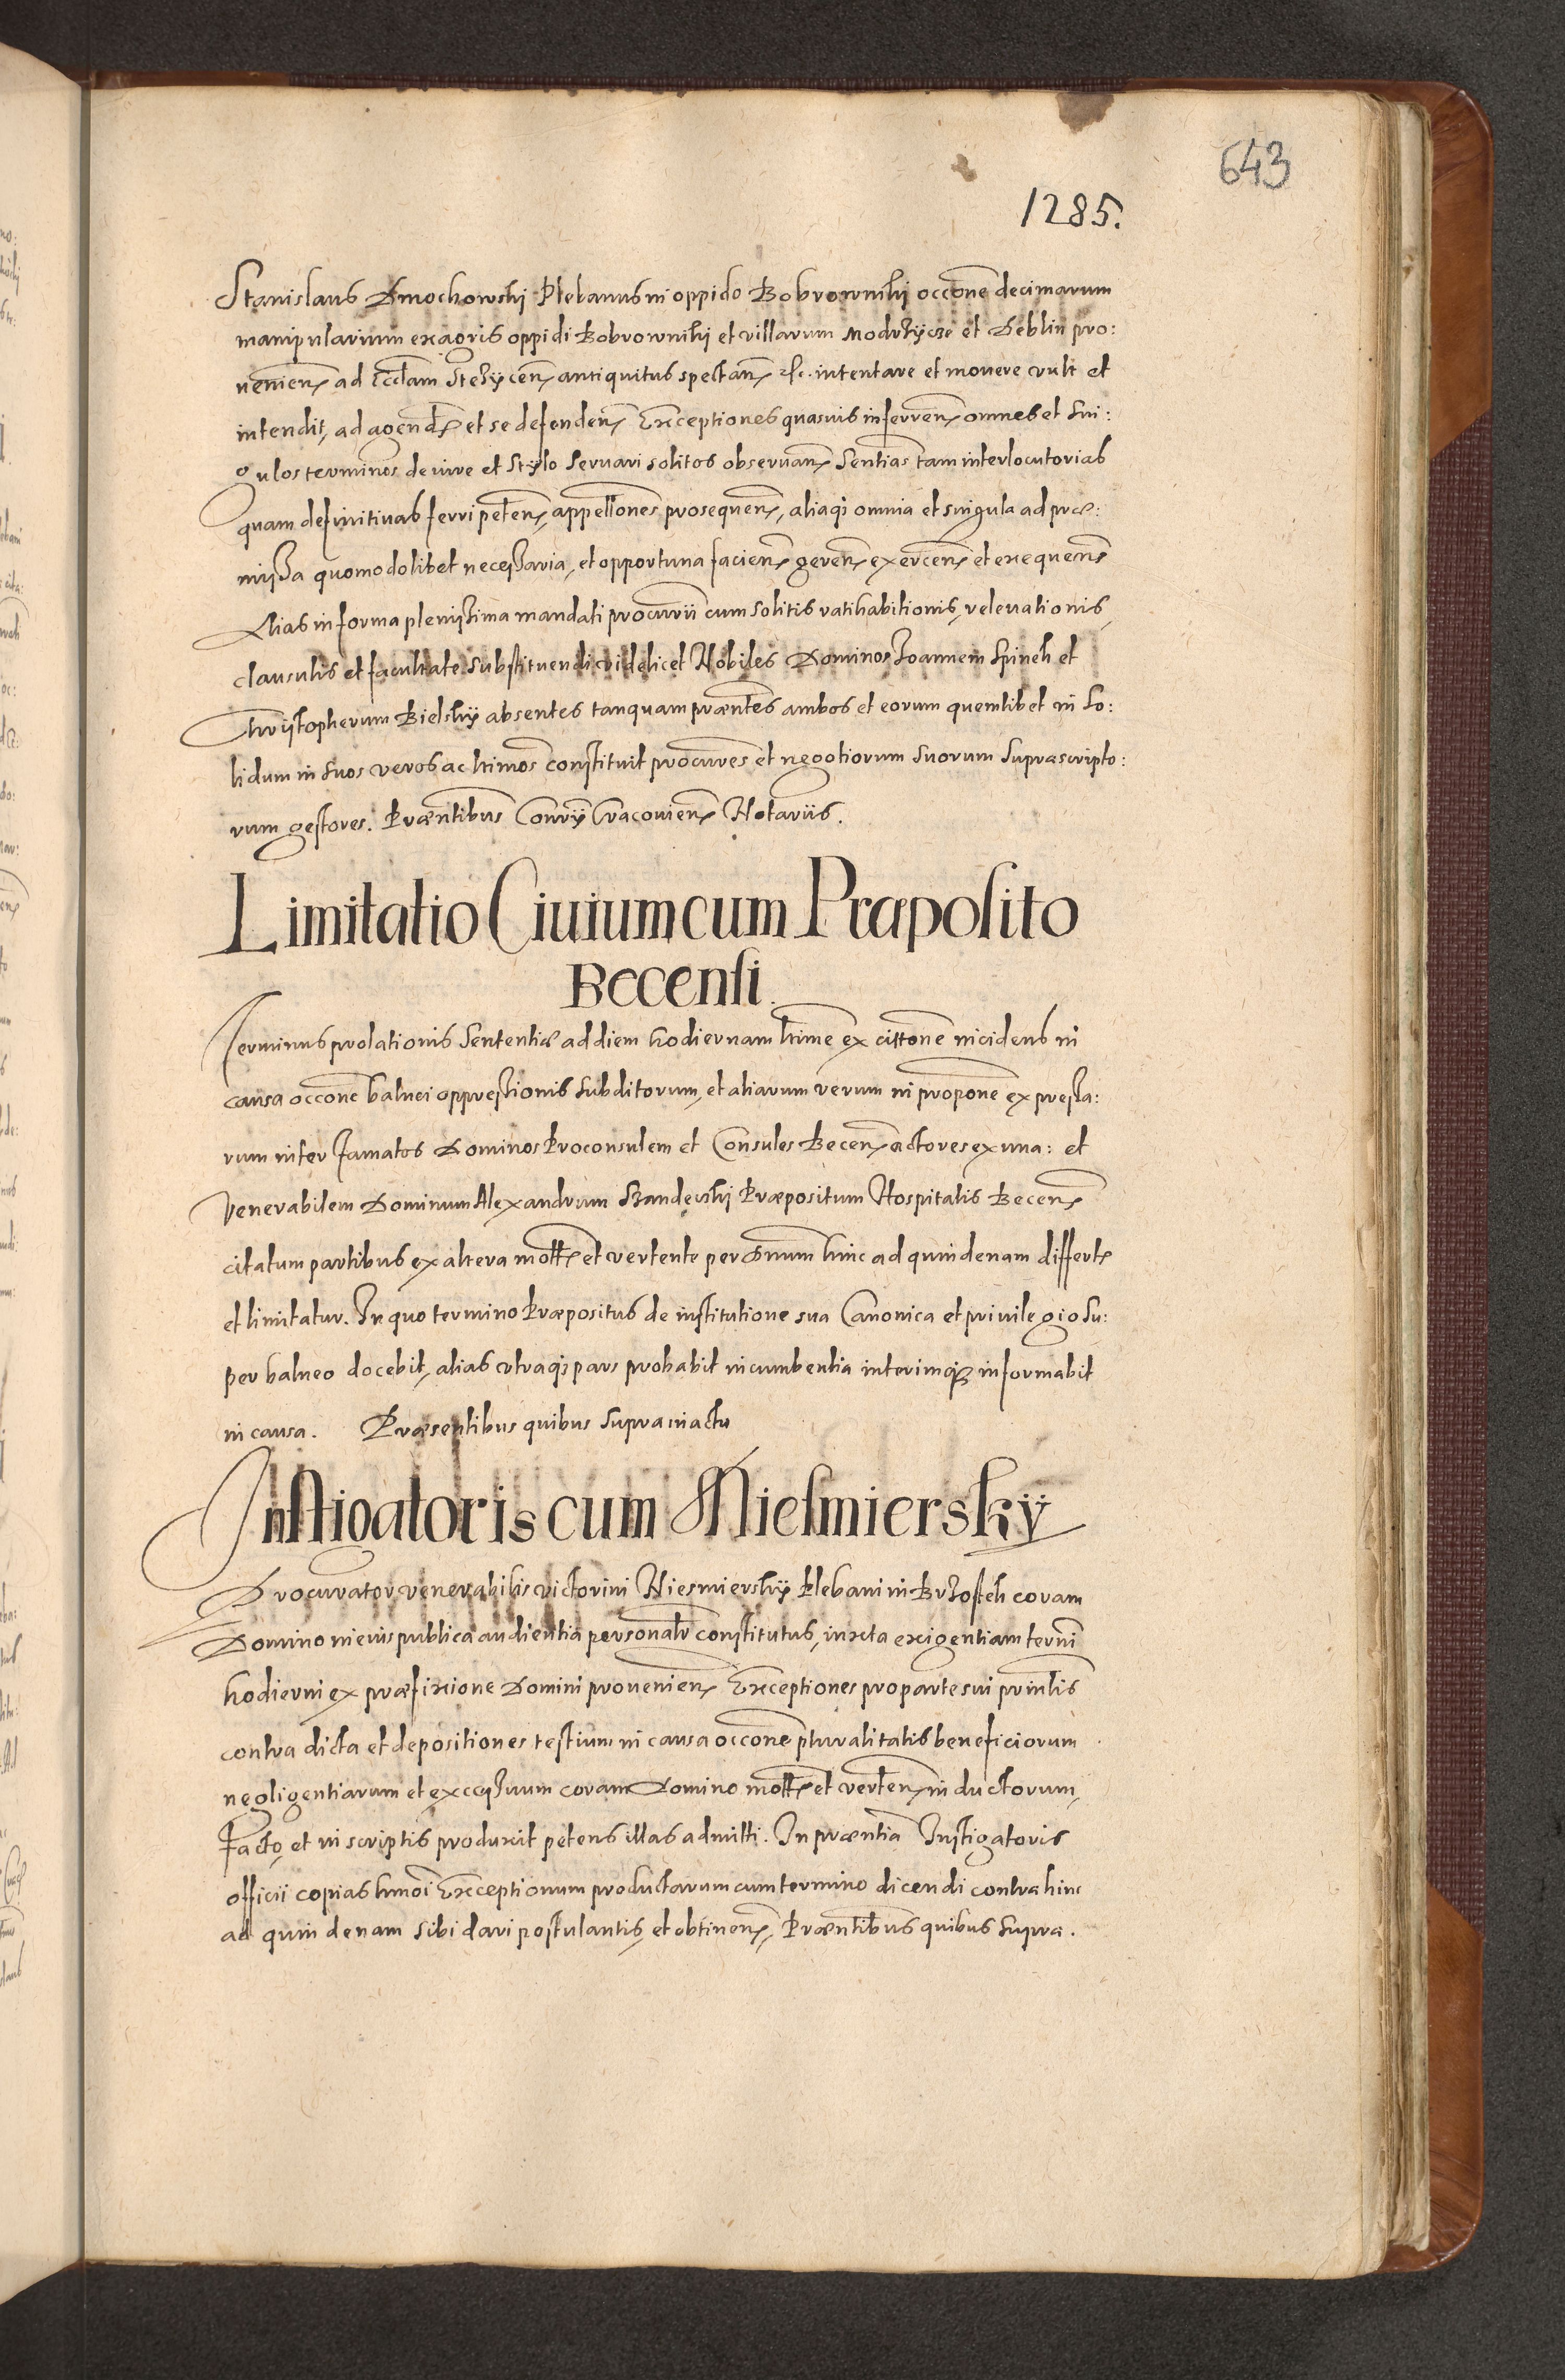 643
1285.
Stanislaus Dmochowski Plebanus in oppido Bobrowniki occone decimarum
manipularium ex agris oppidi Bobrowniki et villarum Modrzycze et Deblin pro:
venien ad Ecclam Stezycen antiquitus spectan &c. intentare et movere vult et
intendit, ad agend et se defenden Exceptiones quasvis inferren omnes et sin:
gulos terminos de iure et stylo servari solitos observan Sentias tam interlocutorias
quam definitivas ferri peten, appellones prosequen, aliaq omnia et singula ad præ:
missa quomodolibet necessaria, et opportuna facien geren exercen et exequen
Alias in forma plenissima mandati procurii cum solitis ratihabitionis, relevationis,
clausulis et facultate substituendi videlicet Nobiles Dominos Joannem Spinek et
Christopherum Bielsky absentes tanquam præntes ambos et eorum quemlibet in so:
lidum in suos veros ac ltimos constituit procures et negotiorum suorum suprascripto:
rum gestores. Præntibus Conry Cracovien Notariis.
Limitatio Civium cum Præposito
Becensi.
Terminus prolationis Sententiæ ad diem hodiernam ltime ex cittone incidens in
causa occone balnei oppressionis subditorum, et aliarum rerum in propone expressa:
rum inter famatos Dominos Proconsulem et Consules Becen actores ex una: et
Venerabilem Dominum Alexandrum Præpositum Hospitalis Becen
citatum partibus ex altera mott et vertente per Dnum hinc ad quindenam differt
et limitatur. In quo termino Præpositus de institutione sua Canonica et privilegio su:
per balneo docebit, alias utraq pars probabit incumbentia interimq informabit
in causa. Præsentibus quibus supra in actu
Instigatoris cum Niesmiersky
Procurator venerabilis victorini Niesmiersky Plebani in Brzostek coram
Domino in eius publica audientia personalr constitutus, iuxta exigentiam termi
hodierni ex præfixione Domini provenien Exceptiones pro parte sui prinlis
contra dicta et depositiones testium in causa occone pluralitatis beneficiorum
negligentiarum et excessuum coram Domino mott et verten inductorum,
facto, et in scriptis produxit petens illas admitti. In præntia Instigatoris
officii copias hmoi Exceptionum productarum cum termino dicendi contra hinc
ad quindenam sibi dari postulantis, et obtinen, Præntibus quibus supra.